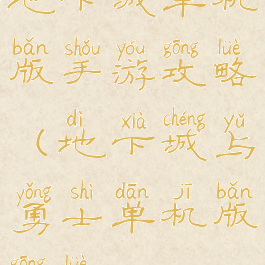 bǎn shǒu yóu gōng lüè
版手游攻略
dì xià chéng yǔ
（地下城与
yǒng shì dān jī bǎn
勇士单机版
gōng lüè